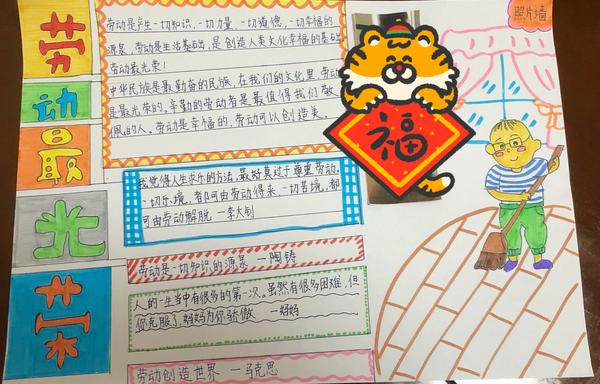 劳动最光荣
劳动是产生一切知识、一切力量、一切道德、一切幸福的
源泉,劳动是生活基础,是创造人类文化幸福的基础
劳动最光荣!
中华民族是最勤奋的民族,在我们的文化里,劳动
是最光荣的,辛勤的劳动者是最值得我们敬
佩的人。劳动是幸福的,劳动可以创造美。
我觉得人生求乐的方法,最好莫过于尊重劳动。
一切乐境,都可由劳动得来,一切苦境,都
可由劳动解脱 —李大钊
劳动是一切知识的源泉 —陶铸
人的一生当中有很多的第一次。虽然有很多困难,但
你克服了,妈妈为你骄傲 —妈妈
劳动创造世界 —马克思
照片墙
福